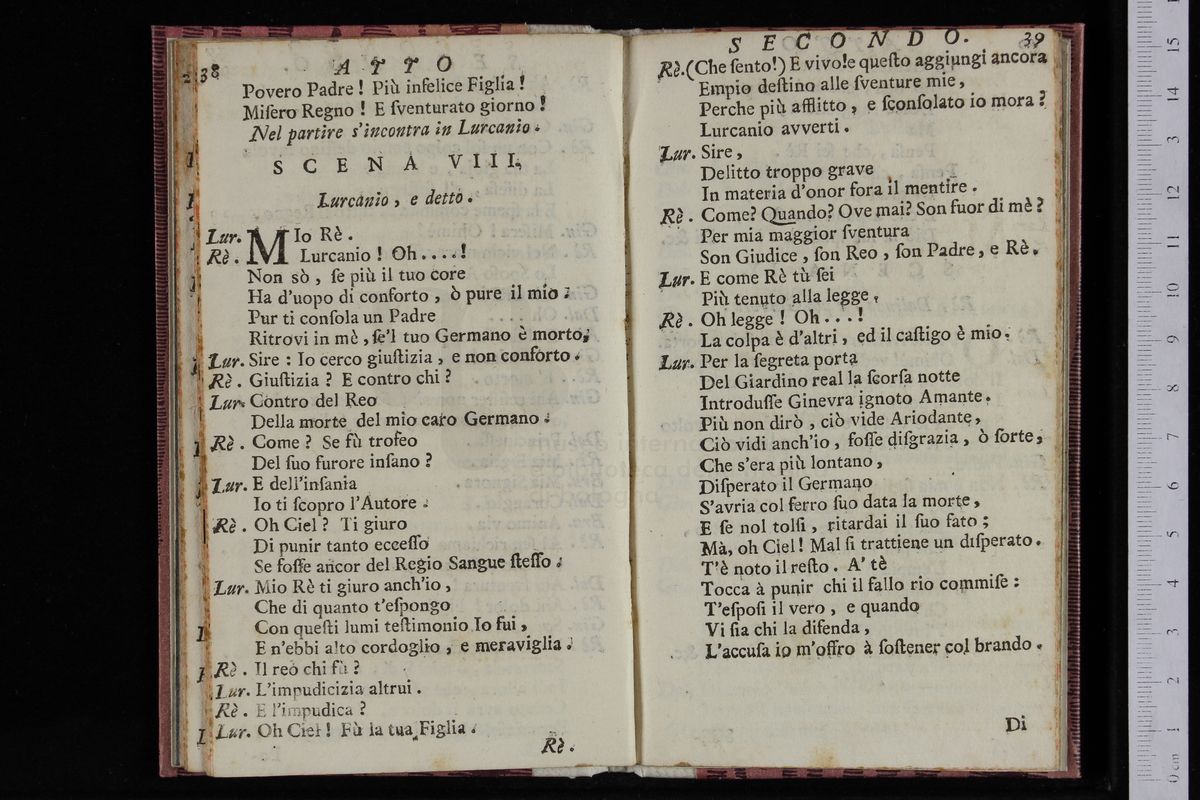 38
ATTO
Povero Padre! Più infelice Figlia!
Miſero Regno! E ſventurato giorno!
Nel partire s'incontra in Lurcanio.
SCENA VIII.
Lurcanio, e detto.
Lur. MIo Rè.
Rè. Lurcanio! Oh....!
Non sò, ſe più il tuo core
Ha d'uopo di conforto, ò pure il mio:
Pur ti conſola un Padre
Ritrovi in mè, ſe'l tuo Germano è morto;
Lur. Sire: Io cerco giuſtizia, e non conforto.
Rè. Giuſtizia? E contro chi?
Lur. Contro del Reo
Della morte del mio caro Germano.
Rè. Come? Se fù trofeo
Del ſuo furore inſano?
Lur. E dell'inſania
Io ti ſcopro l'Autore.
Rè. Oh Ciel? Ti giuro
Di punir tanto ecceſſo
Se foſſe ancor del Regio Sangue ſteſſo.
Lur. Mio Rè ti giuro anch'io,
Che di quanto t'eſpongo
Con queſti lumi teſtimonio Io fui,
E n'ebbi alto cordoglio, e meraviglia.
Rè. Il reo chi fù?
Lur. L'impudicizia altrui.
Rè. E l'impudica?
Lur. Oh Ciel! Fù la tua Figlia.
Rè.
SECONDO. 39
Rè. (Che ſento!) E vivo! e queſto aggiungi ancora
Empio deſtino alle ſventure mie,
Perche più afflitto, e ſconſolato io mora?
Lurcanio avverti.
Lur. Sire,
Delitto troppo grave
In materia d'onor fora il mentire.
Rè. Come? Quando? Ove mai? Son fuor di mè?
Per mia maggior ſventura
Son Giudice, ſon Reo, ſon Padre, e Rè.
Lur. E come Rè tù ſei
Più tenuto alla legge,
Rè. Oh legge! Oh...!
La colpa è d'altri, ed il caſtigo è mio.
Lur. Per la ſegreta porta
Del Giardino real la ſcorſa notte
Introduſſe Ginevra ignoto Amante.
Più non dirò, ciò vide Ariodante,
Ciò vidi anch'io, foſſe diſgrazia, ò ſorte,
Che s'era più lontano,
Diſperato il Germano
S'avria col ferro ſuo data la morte,
E ſe nol tolſi, ritardai il ſuo fato;
Mà, oh Ciel! Mal ſi trattiene un diſperato.
T'è noto il reſto. A' tè
Tocca à punir chi il fallo rio commiſe:
T'eſpoſi il vero, e quando
Vi ſia chi la difenda,
L'accuſa io m'offro à ſoſtener col brando.
Di